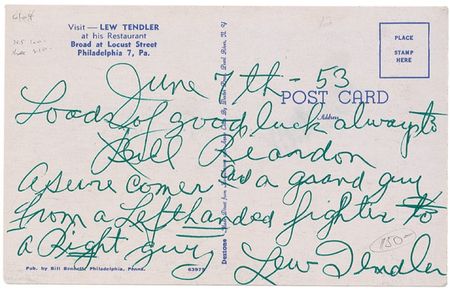 Visit — LEW TENDLER
at his Restaurant
Broad at Locust Street
Philadelphia 7, Pa.
PLACE
STAMP
HERE
June 7th - 53
POST CARD
Address
Loads of good luck always to
Bill Reardon
A sure comer and a grand guy
from a Lefthanded fighter to
a Right guy
Lew Tendler
150-
Pub. by Bill Bennett, Philadelphia, Penna.
63975
Dextone